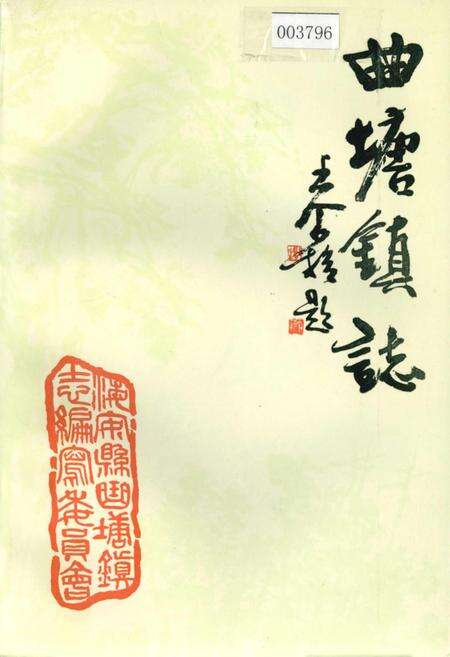 003796
曲塘鎮誌
王 題
海安縣曲塘鎮
志編寫委員會